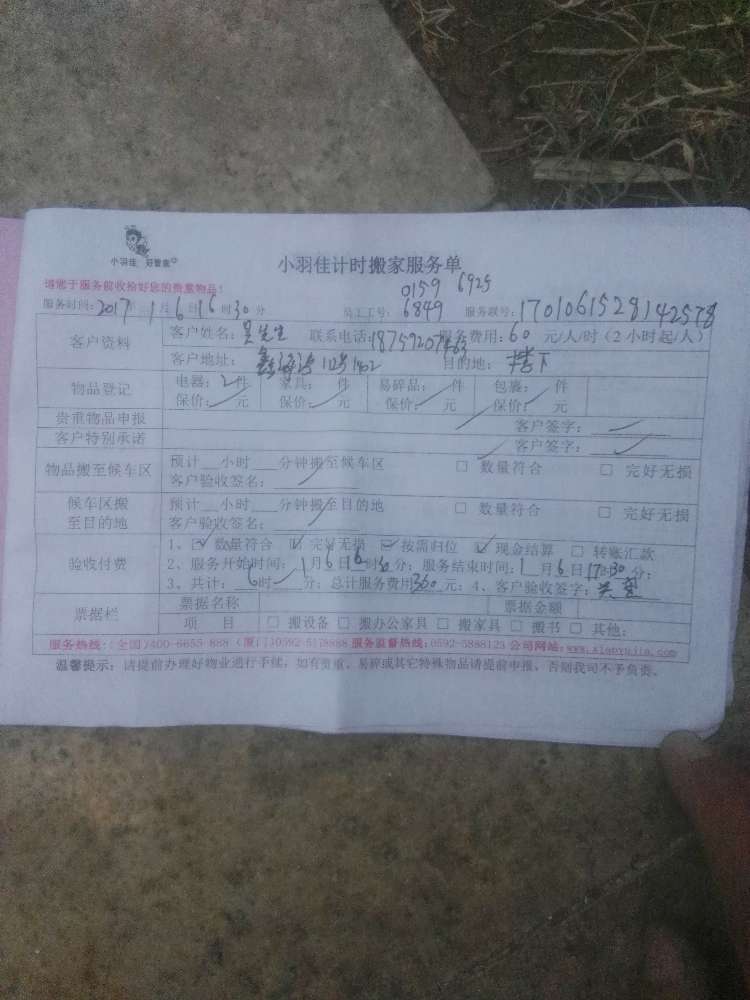 小羽佳 好管家
小羽佳计时搬家服务单
请您于服务前收拾好您的贵重物品!
0159 6925
服务时间:2017年1月6日16时30分 员工工号:6849 服务联号:1701061528142578
客户资料 客户姓名:吴先生 联系电话: 服务费用:60元/人/时(2小时起/人)
客户地址: 12号1402 目的地:楼下
物品登记 电器:2件 家具: 件 易碎品: 件 包裹: 件
保价: 元 保价: 元 保价: 元 保价: 元
贵重物品申报 客户签字:
客户特别承诺 客户签字:
物品搬至候车区 预计 小时 分钟搬至候车区 □ 数量符合 □ 完好无损
客户验收签名:
候车区搬至目的地 预计 小时 分钟搬至目的地 □ 数量符合 □ 完好无损
客户验收签名:
验收付费 1、☑ 数量符合 ☑ 完好无损 ☑ 按需归位 ☑ 现金结算 □ 转账汇款
2、服务开始时间:1月6日16时30分;服务结束时间:1月6日17时30分;
3、共计:6时 分;总计服务费用360元;4、客户验收签字:
票据栏 票据名称 票据金额
项 目 □ 搬设备 □ 搬办公家具 □ 搬家具 □ 搬书 □ 其他:
服务热线:(全国)400-6655-888 (厦门)0592-5178888 服务监督热线:0592-5888123 公司网站:www.xiaoyujia.com
温馨提示:请提前办理好物业进行手续,如有贵重、易碎或其它特殊物品请提前申报,否则我司不予负责。